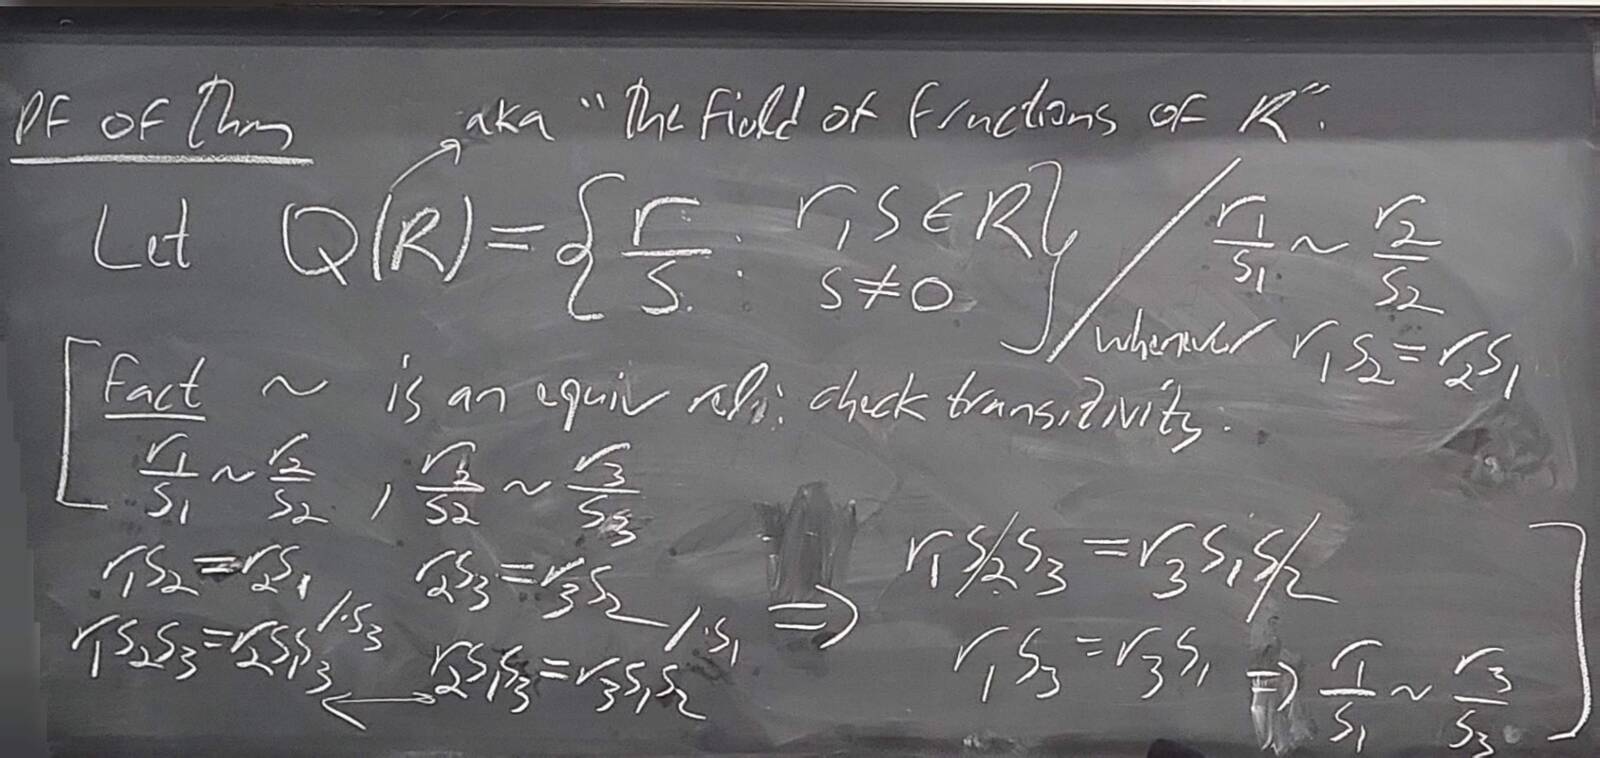 PF OF Thm
aka "The Field of fructions of R".
Let Q(R) = { r/s : r, s ∈ R, s ≠ 0 } / r₁/s₁ ~ r₂/s₂
whenever r₁s₂ = r₂s₁
[Fact ~ is an equiv rel: check transitivity.
r₁/s₁ ~ r₂/s₂ , r₂/s₂ ~ r₃/s₃
r₁s₂ = r₂s₁ /·s₃ r₂s₃ = r₃s₂ /·s₁
r₁s₂s₃ = r₂s₁s₃ ↔ r₂s₁s₃ = r₃s₁s₂
⇒ r₁s̸₂s₃ = r₃s₁s̸₂
r₁s₃ = r₃s₁ ⇒ r₁/s₁ ~ r₃/s₃ ]